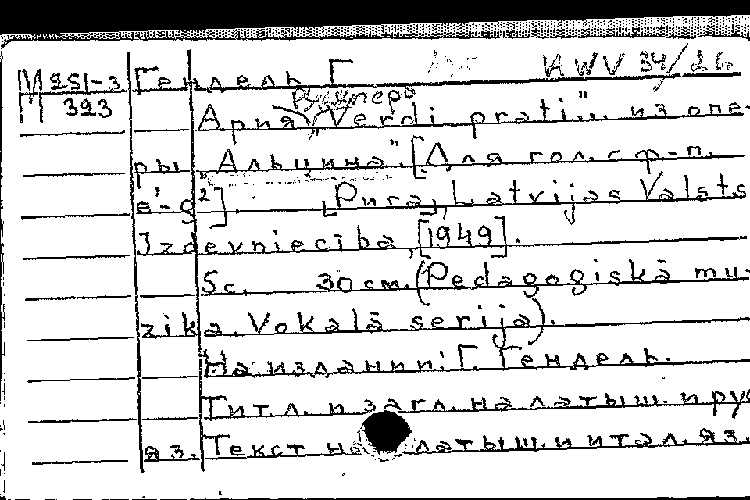 HWV 34/26
М 251-3 Гендель Г.
М 323
Руджеро
Ария "Verdi prati"... из опе-
ры "Альцина". [Для гол. с ф-п.
e¹-g²]. [Рига], Latvijas Valsts
Izdevniecība, [1949].
5 с. 30 см. (Pedagogiskā mu-
zika. Vokalā serija).
На издании: Г. Гендель.
Тит. л. и загл. на латыш. и рус
яз. Текст на латыш. и итал. яз.